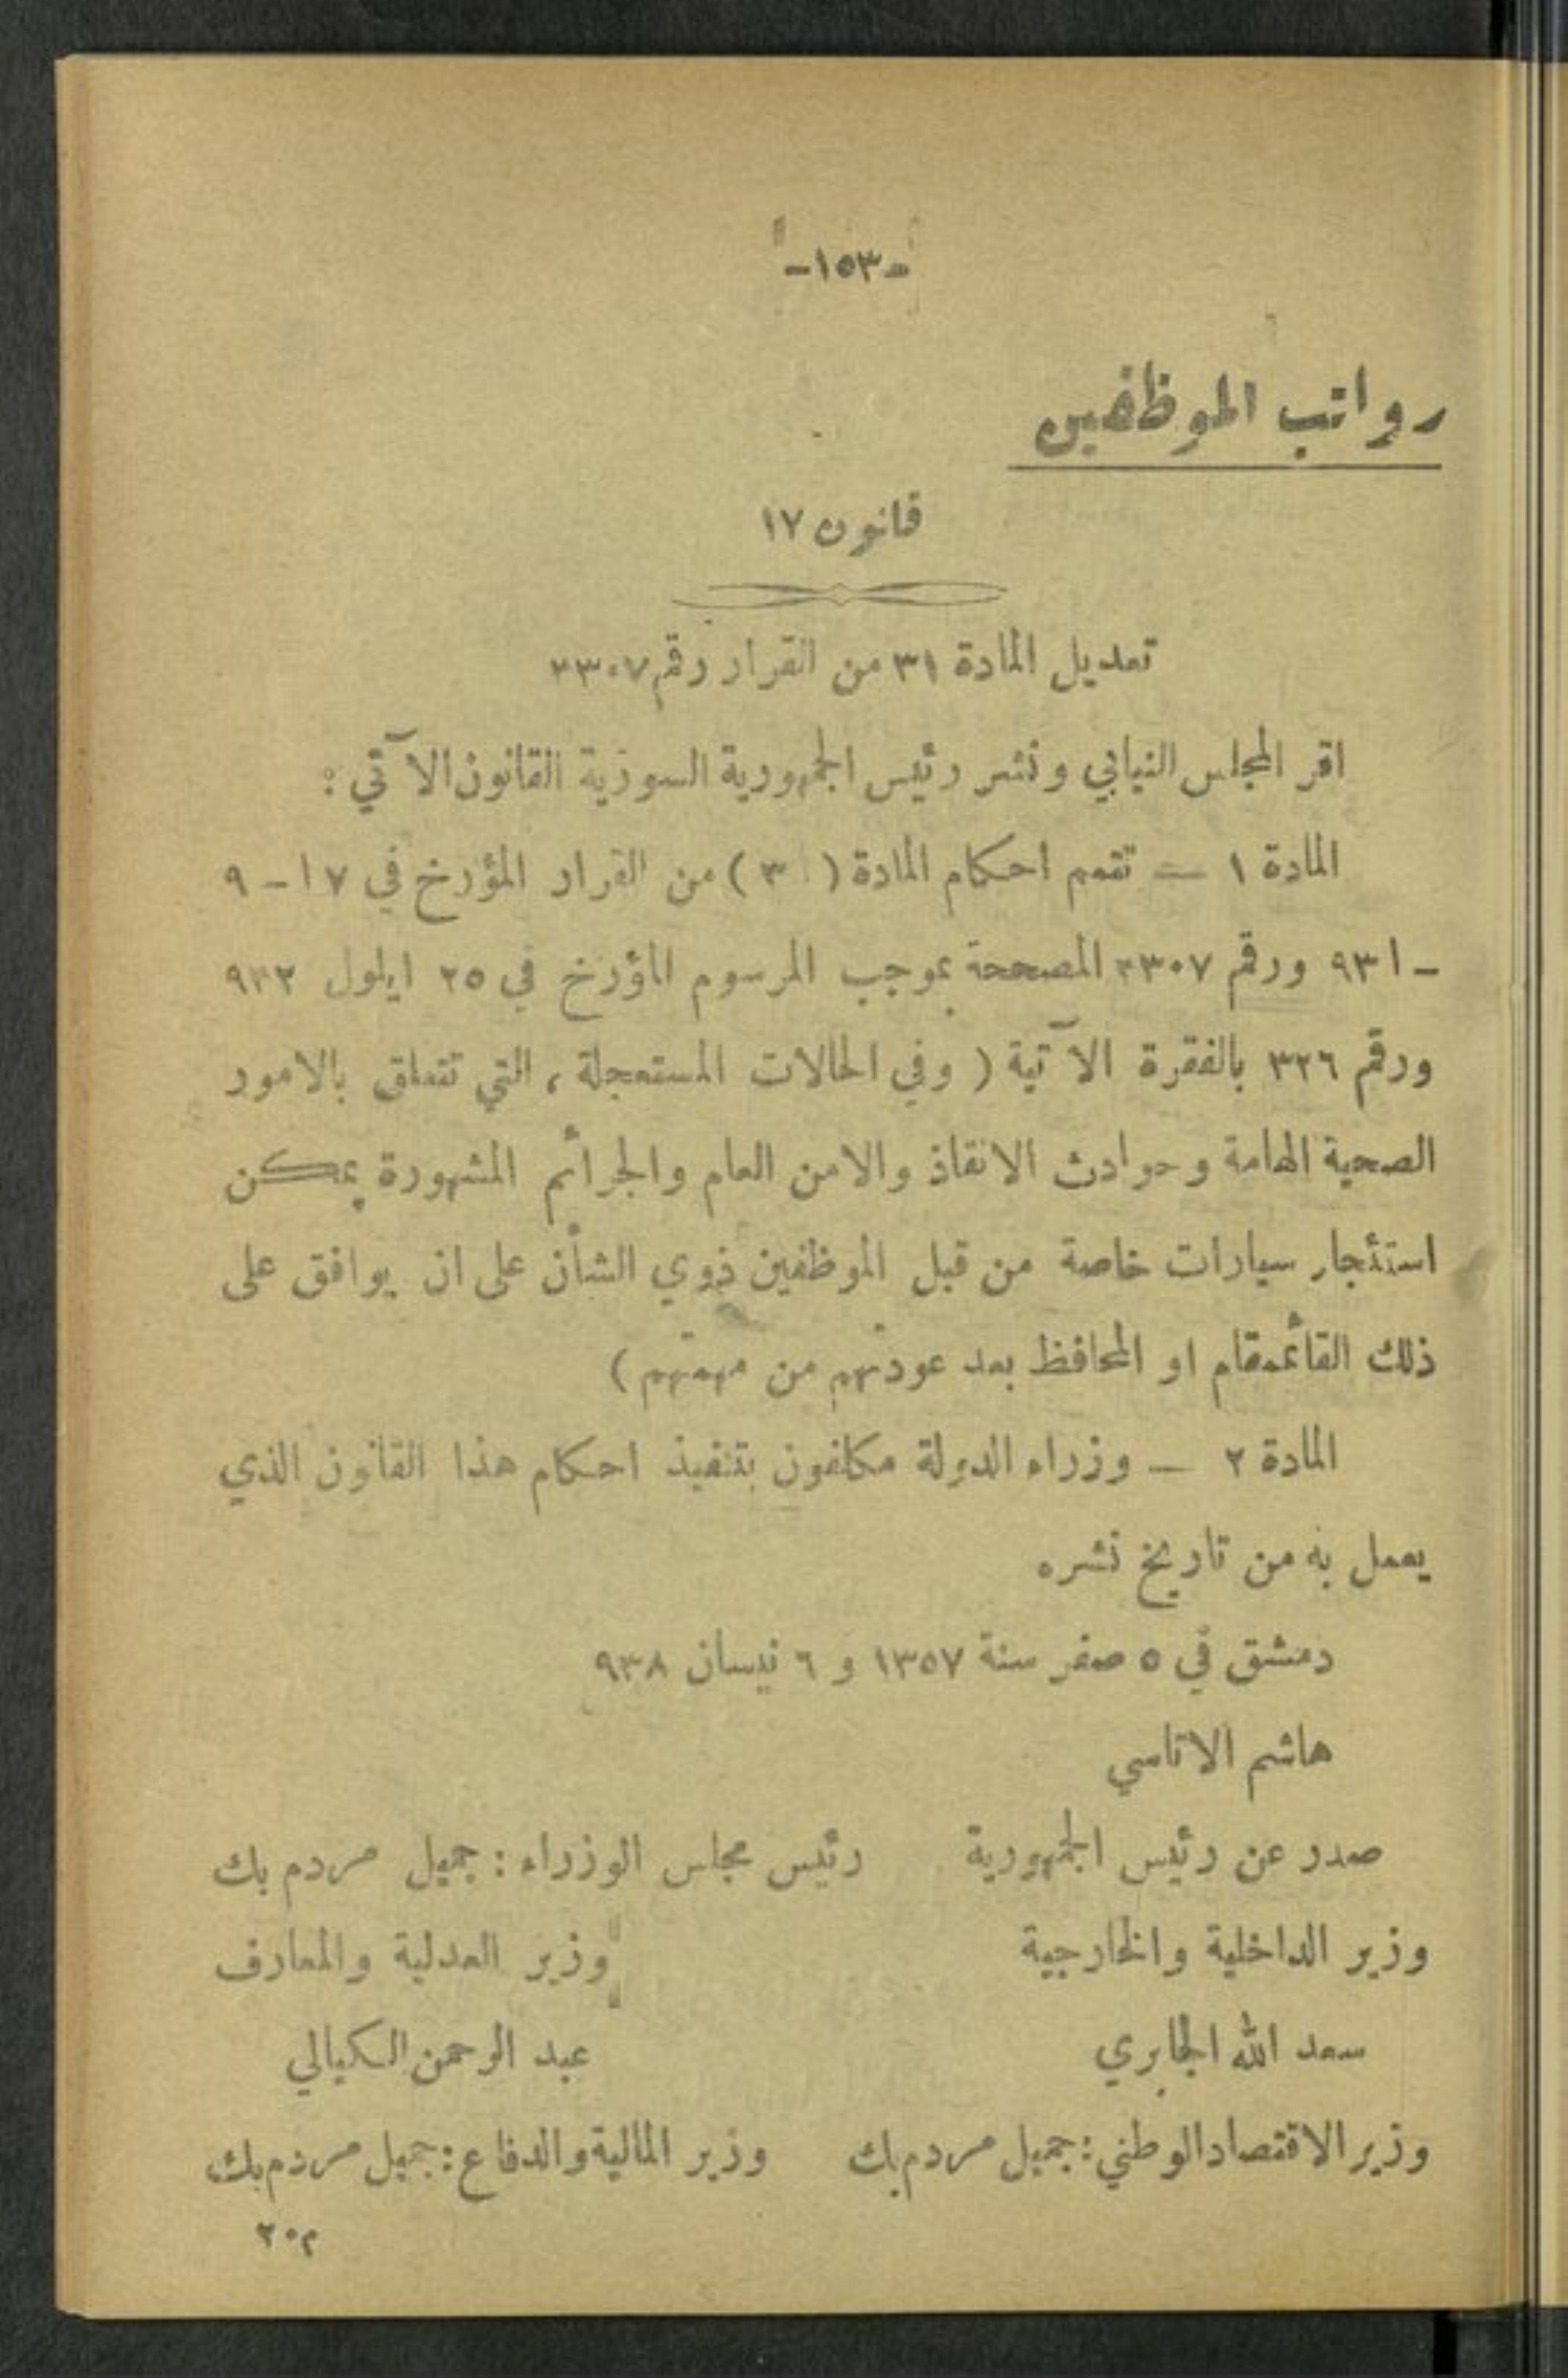 -١٥٣-
رواتب الموظفين
قانون ١٧
تعديل المادة ٣١ من القرار رقم ٣٣٠٧
اقر المجلس النيابي ونشر رئيس الجمهورية السورية القانون الآتي :
المادة ١ — تتمم احكام المادة ( ٣ ) من القرار المؤرخ في ١٧ - ٩
- ٩٣١ ورقم ٣٣٠٧ المصححة بموجب المرسوم المؤرخ في ٢٥ ايلول ٩٣٢
ورقم ٣٢٦ بالفقرة الآتية ( وفي الحالات المستعجلة ، التي تتعلق بالامور
الصحية الهامة وحوادث الانقاذ والامن العام والجرائم المشهورة يمكن
استئجار سيارات خاصة من قبل الموظفين ذوي الشأن على ان يوافق على
ذلك القائمقام او المحافظ بعد عودتهم من مهمتهم )
المادة ٢ — وزراء الدولة مكلفون بتنفيذ احكام هذا القانون الذي
يعمل به من تاريخ نشره
دمشق في ٥ صفر سنة ١٣٥٧ و ٦ نيسان ٩٣٨
هاشم الاتاسي
صدر عن رئيس الجمهورية رئيس مجلس الوزراء : جميل مردم بك
وزير الداخلية والخارجية وزير العدلية والمعارف
سعد الله الجابري عبد الرحمن الكيالي
وزير الاقتصاد الوطني : جميل مردم بك وزير المالية والدفاع : جميل مردم بك
م ٢٠